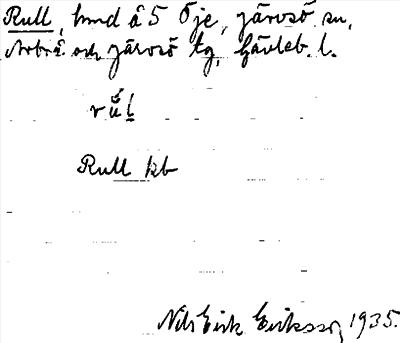 Rull, hmd å 5 Öje, Järvsö sn,
Arbrå och Järvsö tg, Gävleb. l.
rủl
Rull kb
Nils Eirik Eriksson, 1935.